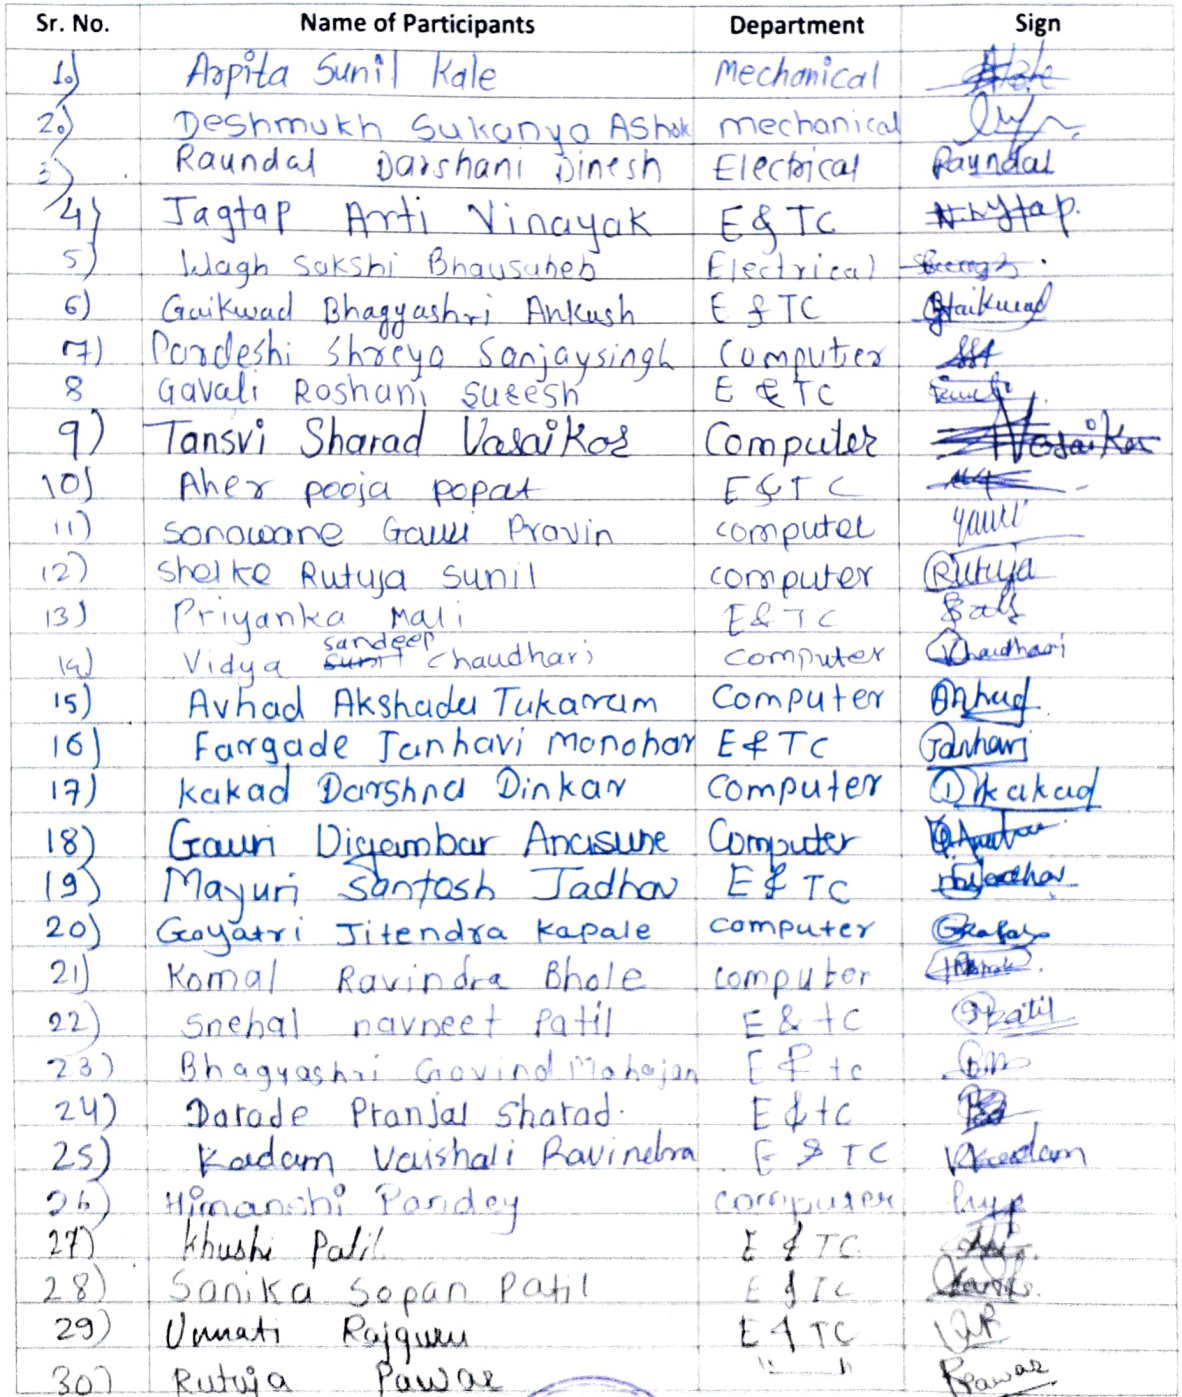 Sr. No. Name of Participants Department Sign
1.) Arpita Sunil Kale Mechanical
2.) Deshmukh Sukanya Ashok mechanical
3) Raundal Darshani Dinesh Electrical Raundal
4) Jagtap Arti Vinayak E&TC
5) Wagh Sakshi Bhausaheb Electrical
6) Gaikwad Bhagyashri Ankush E & TC Gaikwad
7) Pardeshi Shreya Sanjaysingh Computer
8 Gavali Roshani Suresh E & TC
9) Tansvi Sharad Vasaikar Computer Vasaikar
10) Aher pooja popat E&TC
11) Sonawane Gauri Pravin computer Gauri
12) Shelke Rutuja Sunil computer Rutuja
13) Priyanka Mali E&TC
14) Vidya sandeep Chaudhari computer Chaudhari
15) Avhad Akshada Tukaram Computer Avhad
16) Fargade Janhavi Manohar E & TC Janhavi
17) Kakad Darshna Dinkar Computer Dkakad
18) Gauri Digambar Computer
19) Mayuri Santosh Jadhav E & TC
20) Gayatri Jitendra Kapale computer
21) Komal Ravindra Bhole computer
22) Snehal navneet Patil E & tc SPatil
23) Bhagyashri Govind Mahajan E & tc
24) Darade Pranjal Sharad. E & tc
25) Kadam Vaishali Ravinebra E & TC VKadam
26) Himanshi Pandey computer
27) Khushi Patil E & TC
28) Sanika Sopan Patil E & TC
29) Unnati Rajguru E & TC
30) Rutuja Pawar " — " RPawar